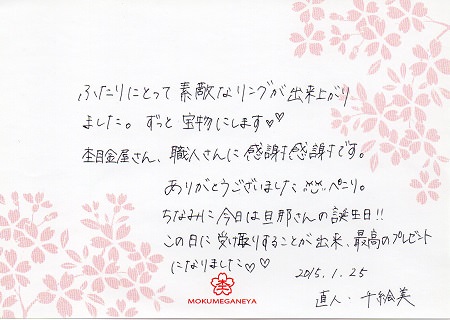 ふたりにとって 素敵なリングが出来上がり
ました。ずっと宝物にします♡♡
杢目金屋さん、職人さんに感謝感謝です。
ありがとうございました ペコリ。
ちなみに今日は旦那さんの誕生日!!
この日に受け取りすることが出来、最高のプレゼント
になりました♡♡
2015.1.25
直人・千絵美
杢
MOKUMEGANEYA